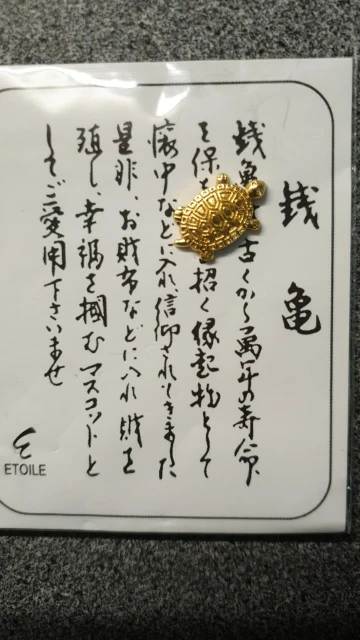 銭亀
銭亀は古くから萬年の寿命
を保ち 招く縁起物として
懐中などに入れ信仰されてきました
是非、お財布などに入れ財を
殖し、幸福を掴むマスコットと
してご愛用下さいませ
ETOILE